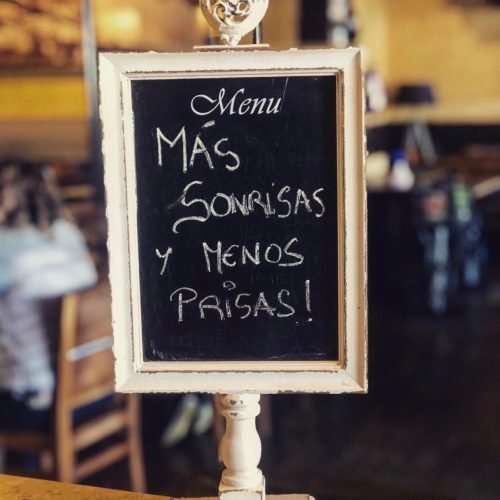 Menu
MÁS
SONRISAS
Y MENOS
PRISAS!